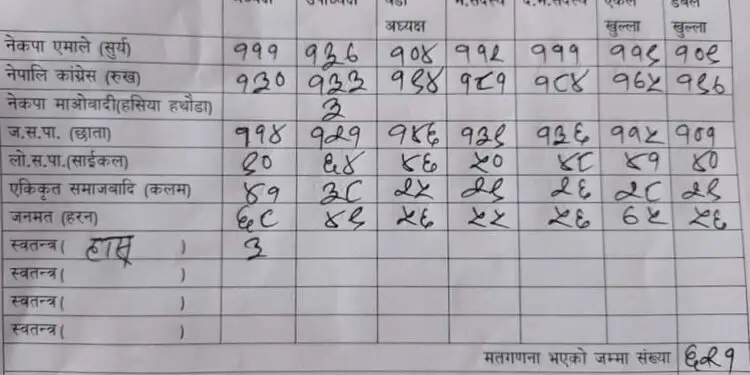 अध्यक्ष उपाध्यक्ष वडा अध्यक्ष म.सदस्य द.म.सदस्य एकल खुल्ला डबल खुल्ला
नेकपा एमाले (सुर्य) १११ १३६ १०४ ११२ १११ ११९ १०९
नेपालि कांग्रेस (रुख) १३० १३३ १९४ १८१ १८४ १६५
नेकपा माओवादी(हसिया हथौडा) ३
ज.स.पा. (छाता) ११४ १२१ १४६ १३९ १३६ ११५ १०१
लो.स.पा.(साईकल) ९० ६४ ४६ ५० ४८ ४१ ४०
एकिकृत समाजवादि (कलम) ४१ ३८ २५ २९ २६ २८ २९
जनमत (हरन) ६८ ४९ ५६ ५५ ५६ ५६
स्वतन्त्र( हासू ) ३
स्वतन्त्र( )
स्वतन्त्र( )
स्वतन्त्र( )
मतगणना भएको जम्मा संख्या ६२१